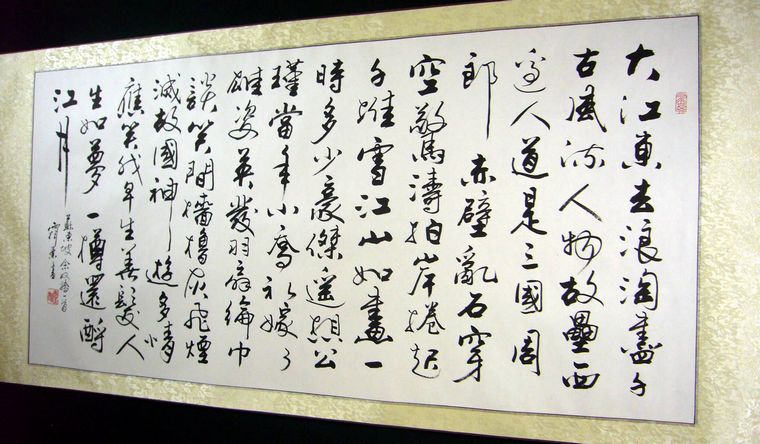 大江東去浪淘盡千
古風流人物故壘西
邊人道是三國周
郎 赤壁亂石穿
空驚濤拍岸捲起
千堆雪江山如畫一
時多少豪傑遙想公
瑾當年小喬初嫁了
雄姿英發羽扇綸巾
談笑間檣櫓灰飛煙
滅故國神遊多情
應笑我早生華髮人
生如夢一樽還酹
江月
蘇東坡念奴嬌一首